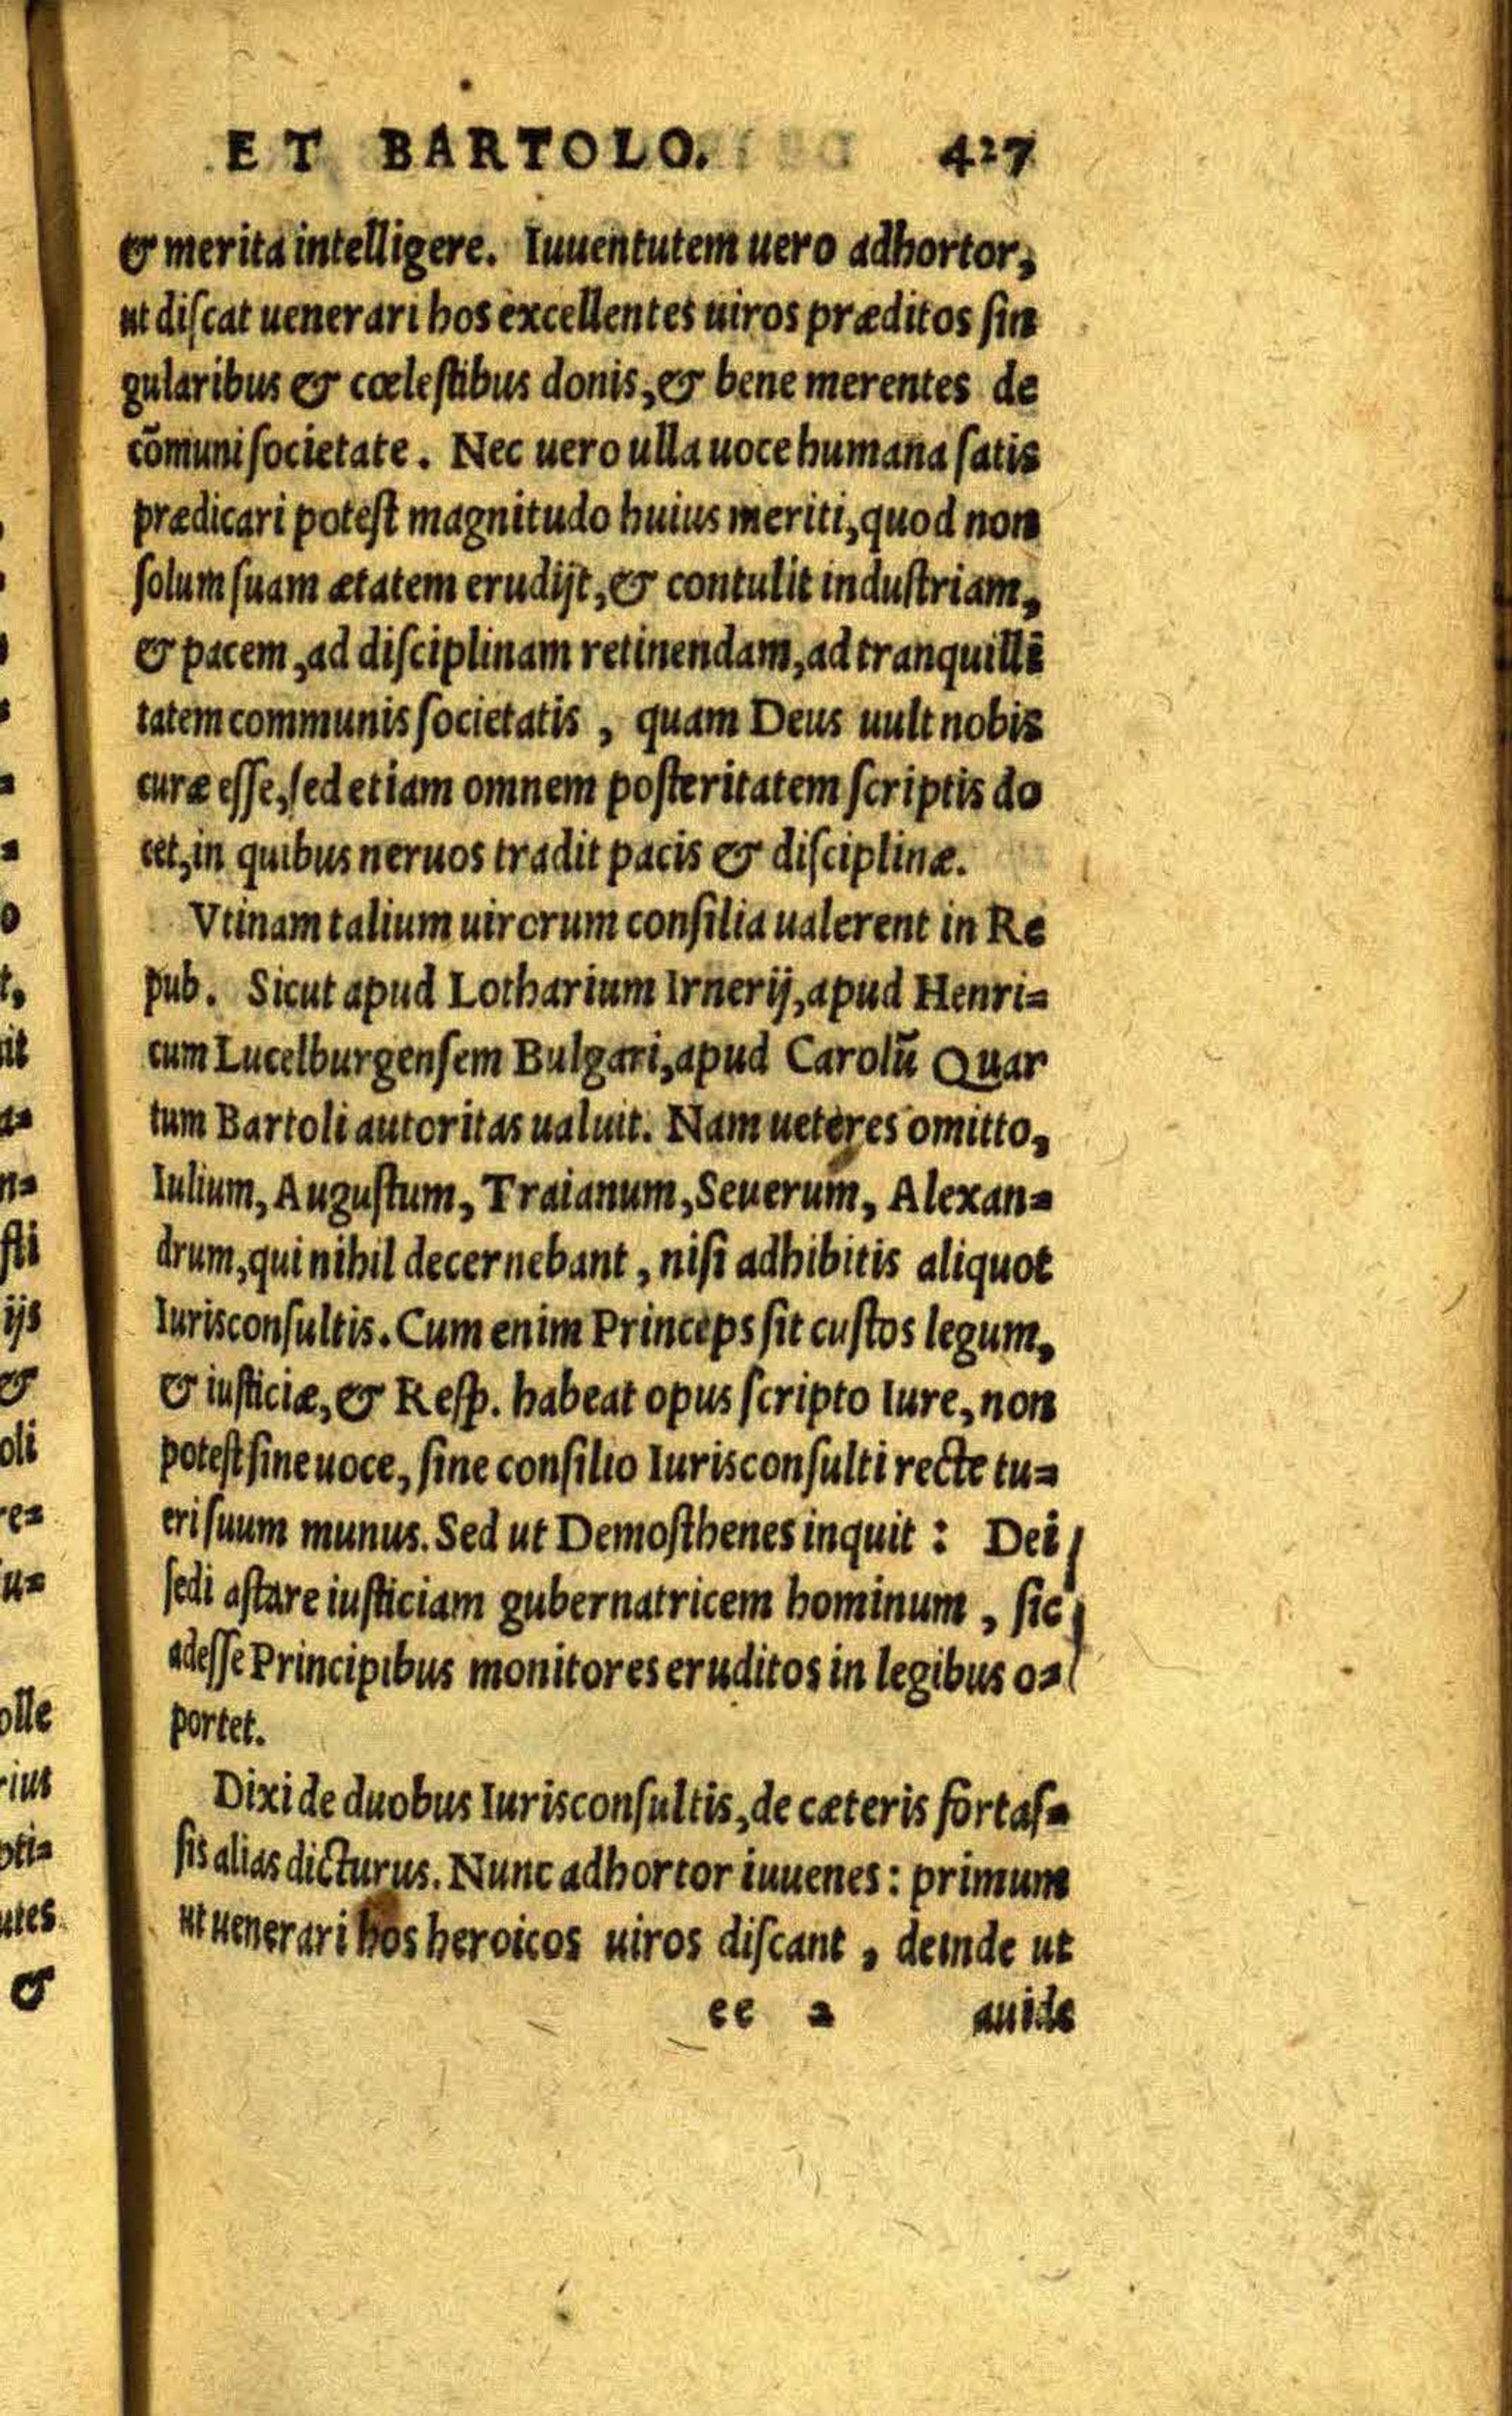 ET BARTOLO. 427
& merita intelligere. Iuuentutem uero adhortor,
ut discat uenerari hos excellentes uiros præditos sin
gularibus & cœlestibus donis, & bene merentes de
cōmuni societate. Nec uero ulla uoce humana satis
prædicari potest magnitudo huius meriti, quod non
solum suam ætatem erudijt, & contulit industriam,
& pacem, ad disciplinam retinendam, ad tranquilli
tatem communis societatis, quam Deus uult nobis
curæ esse, sed etiam omnem posteritatem scriptis do
cet, in quibus neruos tradit pacis & disciplinæ.
Vtinam talium uirorum consilia ualerent in Re
pub. Sicut apud Lotharium Irnerij, apud Henri=
cum Lucelburgensem Bulgari, apud Carolū Quar
tum Bartoli autoritas ualuit. Nam ueteres omitto,
Iulium, Augustum, Traianum, Seuerum, Alexan=
drum, qui nihil decernebant, nisi adhibitis aliquot
Iurisconsultis. Cum enim Princeps sit custos legum,
& iusticiæ, & Resp. habeat opus scripto Iure, non
potest sine uoce, sine consilio Iurisconsulti recte tu=
eri suum munus. Sed ut Demosthenes inquit: Dei
sedi astare iusticiam gubernatricem hominum, sic
adesse Principibus monitores eruditos in legibus o=
portet.
Dixi de duobus Iurisconsultis, de cæteris fortas=
sis alias dicturus. Nunc adhortor iuuenes: primum
ut uenerari hos heroicos uiros discant, deinde ut
ee 2 auide